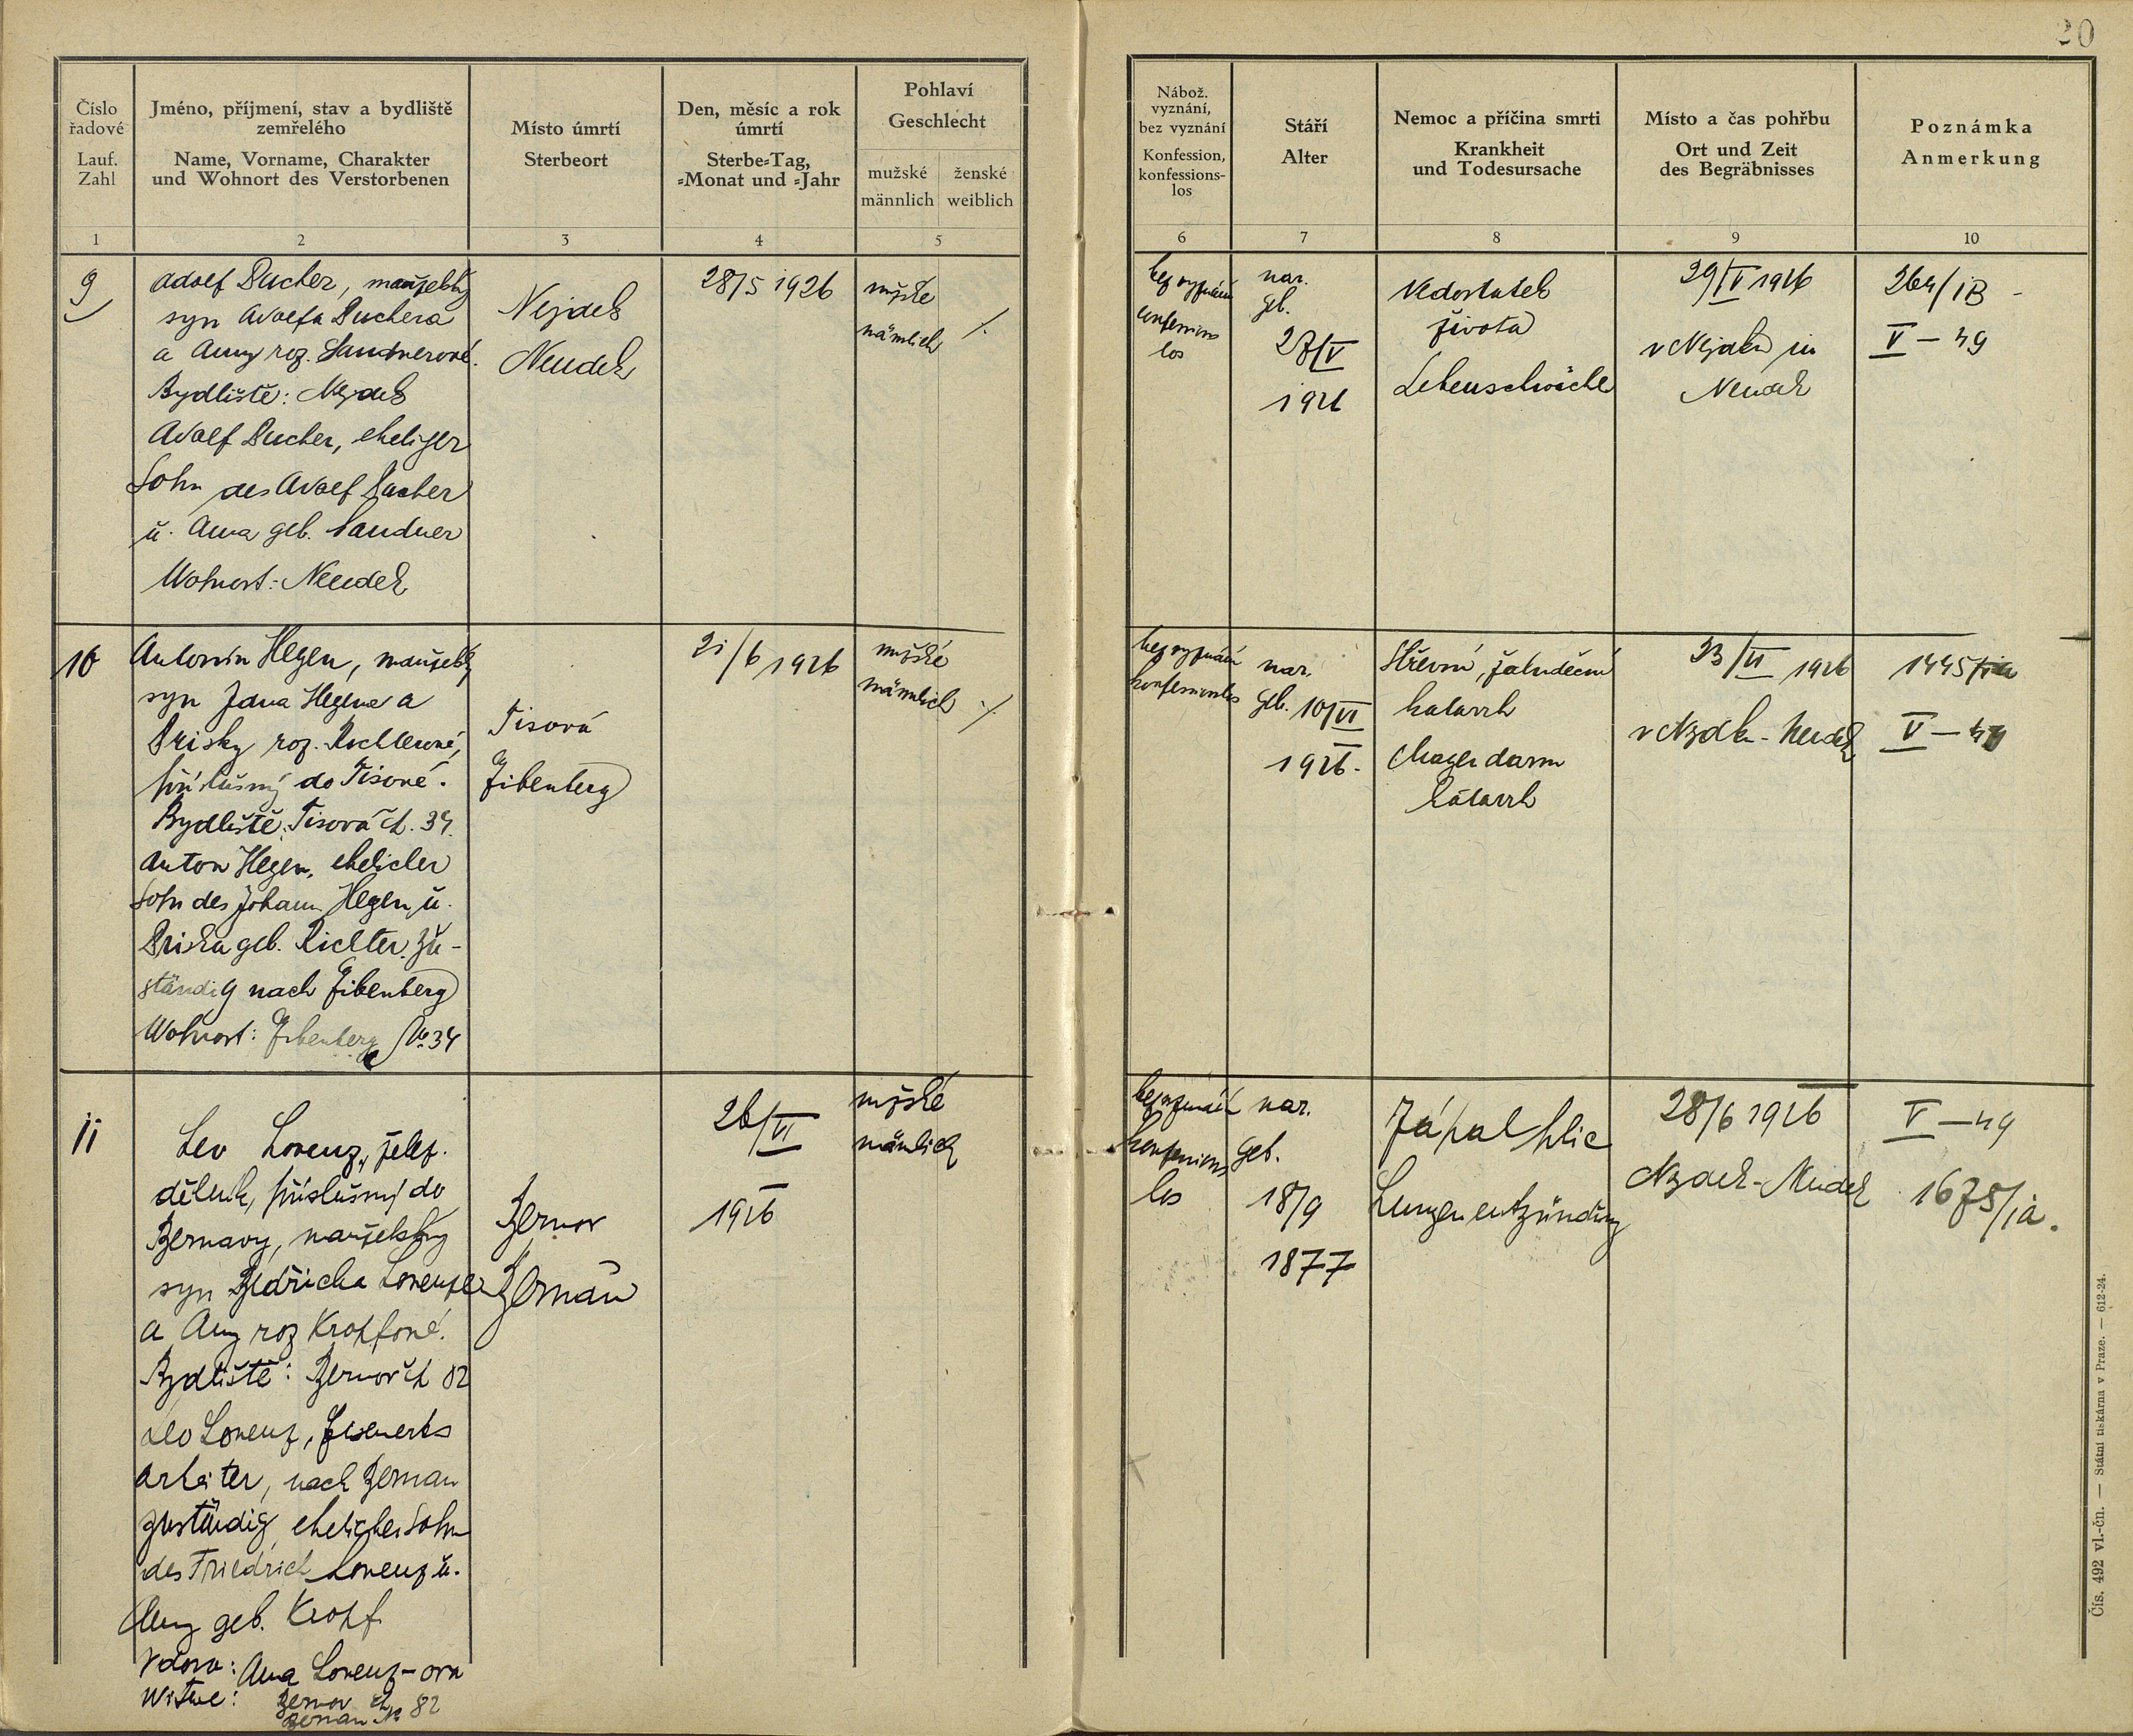 20
Číslo řadové
Lauf. Zahl
Jméno, příjmení, stav a bydliště zemřelého
Name, Vorname, Charakter und Wohnort des Verstorbenen
Místo úmrtí
Sterbeort
Den, měsíc a rok úmrtí
Sterbe-Tag, -Monat und -Jahr
Pohlaví
Geschlecht
mužské
männlich
ženské
weiblich
Nábož. vyznání, bez vyznání
Konfession, konfessions-los
Stáří
Alter
Nemoc a příčina smrti
Krankheit und Todesursache
Místo a čas pohřbu
Ort und Zeit des Begräbnisses
Poznámka
Anmerkung
1 2 3 4 5 6 7 8 9 10
9
Adolf Bucher, manželský
syn Adolfa Buchera
a Anny roz. Sandnerové.
Bydliště: Nejdek
Adolf Bucher, ehelicher
Sohn des Adolf Bucher
u. Anna geb. Sandner
Wohnort: Neudek
Nejdek
Neudek
28/5 1926
mužské
männlich /.
bez vyznání
konfessions
los
nar.
geb.
28/V
1926
Nedostatek
života
Lebenschwäche
29/V 1926
v Nejdku in
Neudek
264/iB -
V - 49
10
Antonín Hegen, manželský
syn Jana Hegena a
Prisky roz. Richterové,
příslušný do Tisové.
Bydliště: Tisová čp. 34.
Anton Hegen, ehelicher
Sohn des Johann Hegen u.
Priska geb. Richter. Zu-
ständig nach Eibenberg
Wohnort: Eibenberg No 34
Tisová
Eibenberg
21/6 1926
mužské
männlich /.
bez vyznání
konfessionslos
nar.
geb. 10/VI
1926.
Střevní, žaludeční
katarrh
Magendarm
katarrh
23/VI 1926
v Nejdku - Neudek
1445/
V -
11
Lev Lorenz, želez.
dělník, příslušný do
Bernavy, manželský
syn Bedřicha Lorenze
a Anny roz Kropfové.
Bydliště: Bernov čp 82
Leo Lorenz, Eisenwerks
arbeiter, nach Bernau
zuständig, ehelicher Sohn
des Friedrich Lorenz u.
Anny geb. Kropf.
Vdova: Anna Lorenz-ova
Witwe: Bernov čp 82
Bernau No
Bernov
Bernau
26/VI
1926
mužské
männlich
bez vyznání
konfessions
los
nar.
geb.
18/9
1877
Zápal plic
Lungenentzündung
28/6 1926
Nejdek - Neudek
V - 49
1675/ia.
Čís. 492 vl.-čn. — Státní tiskárna v Praze. — 612-24.